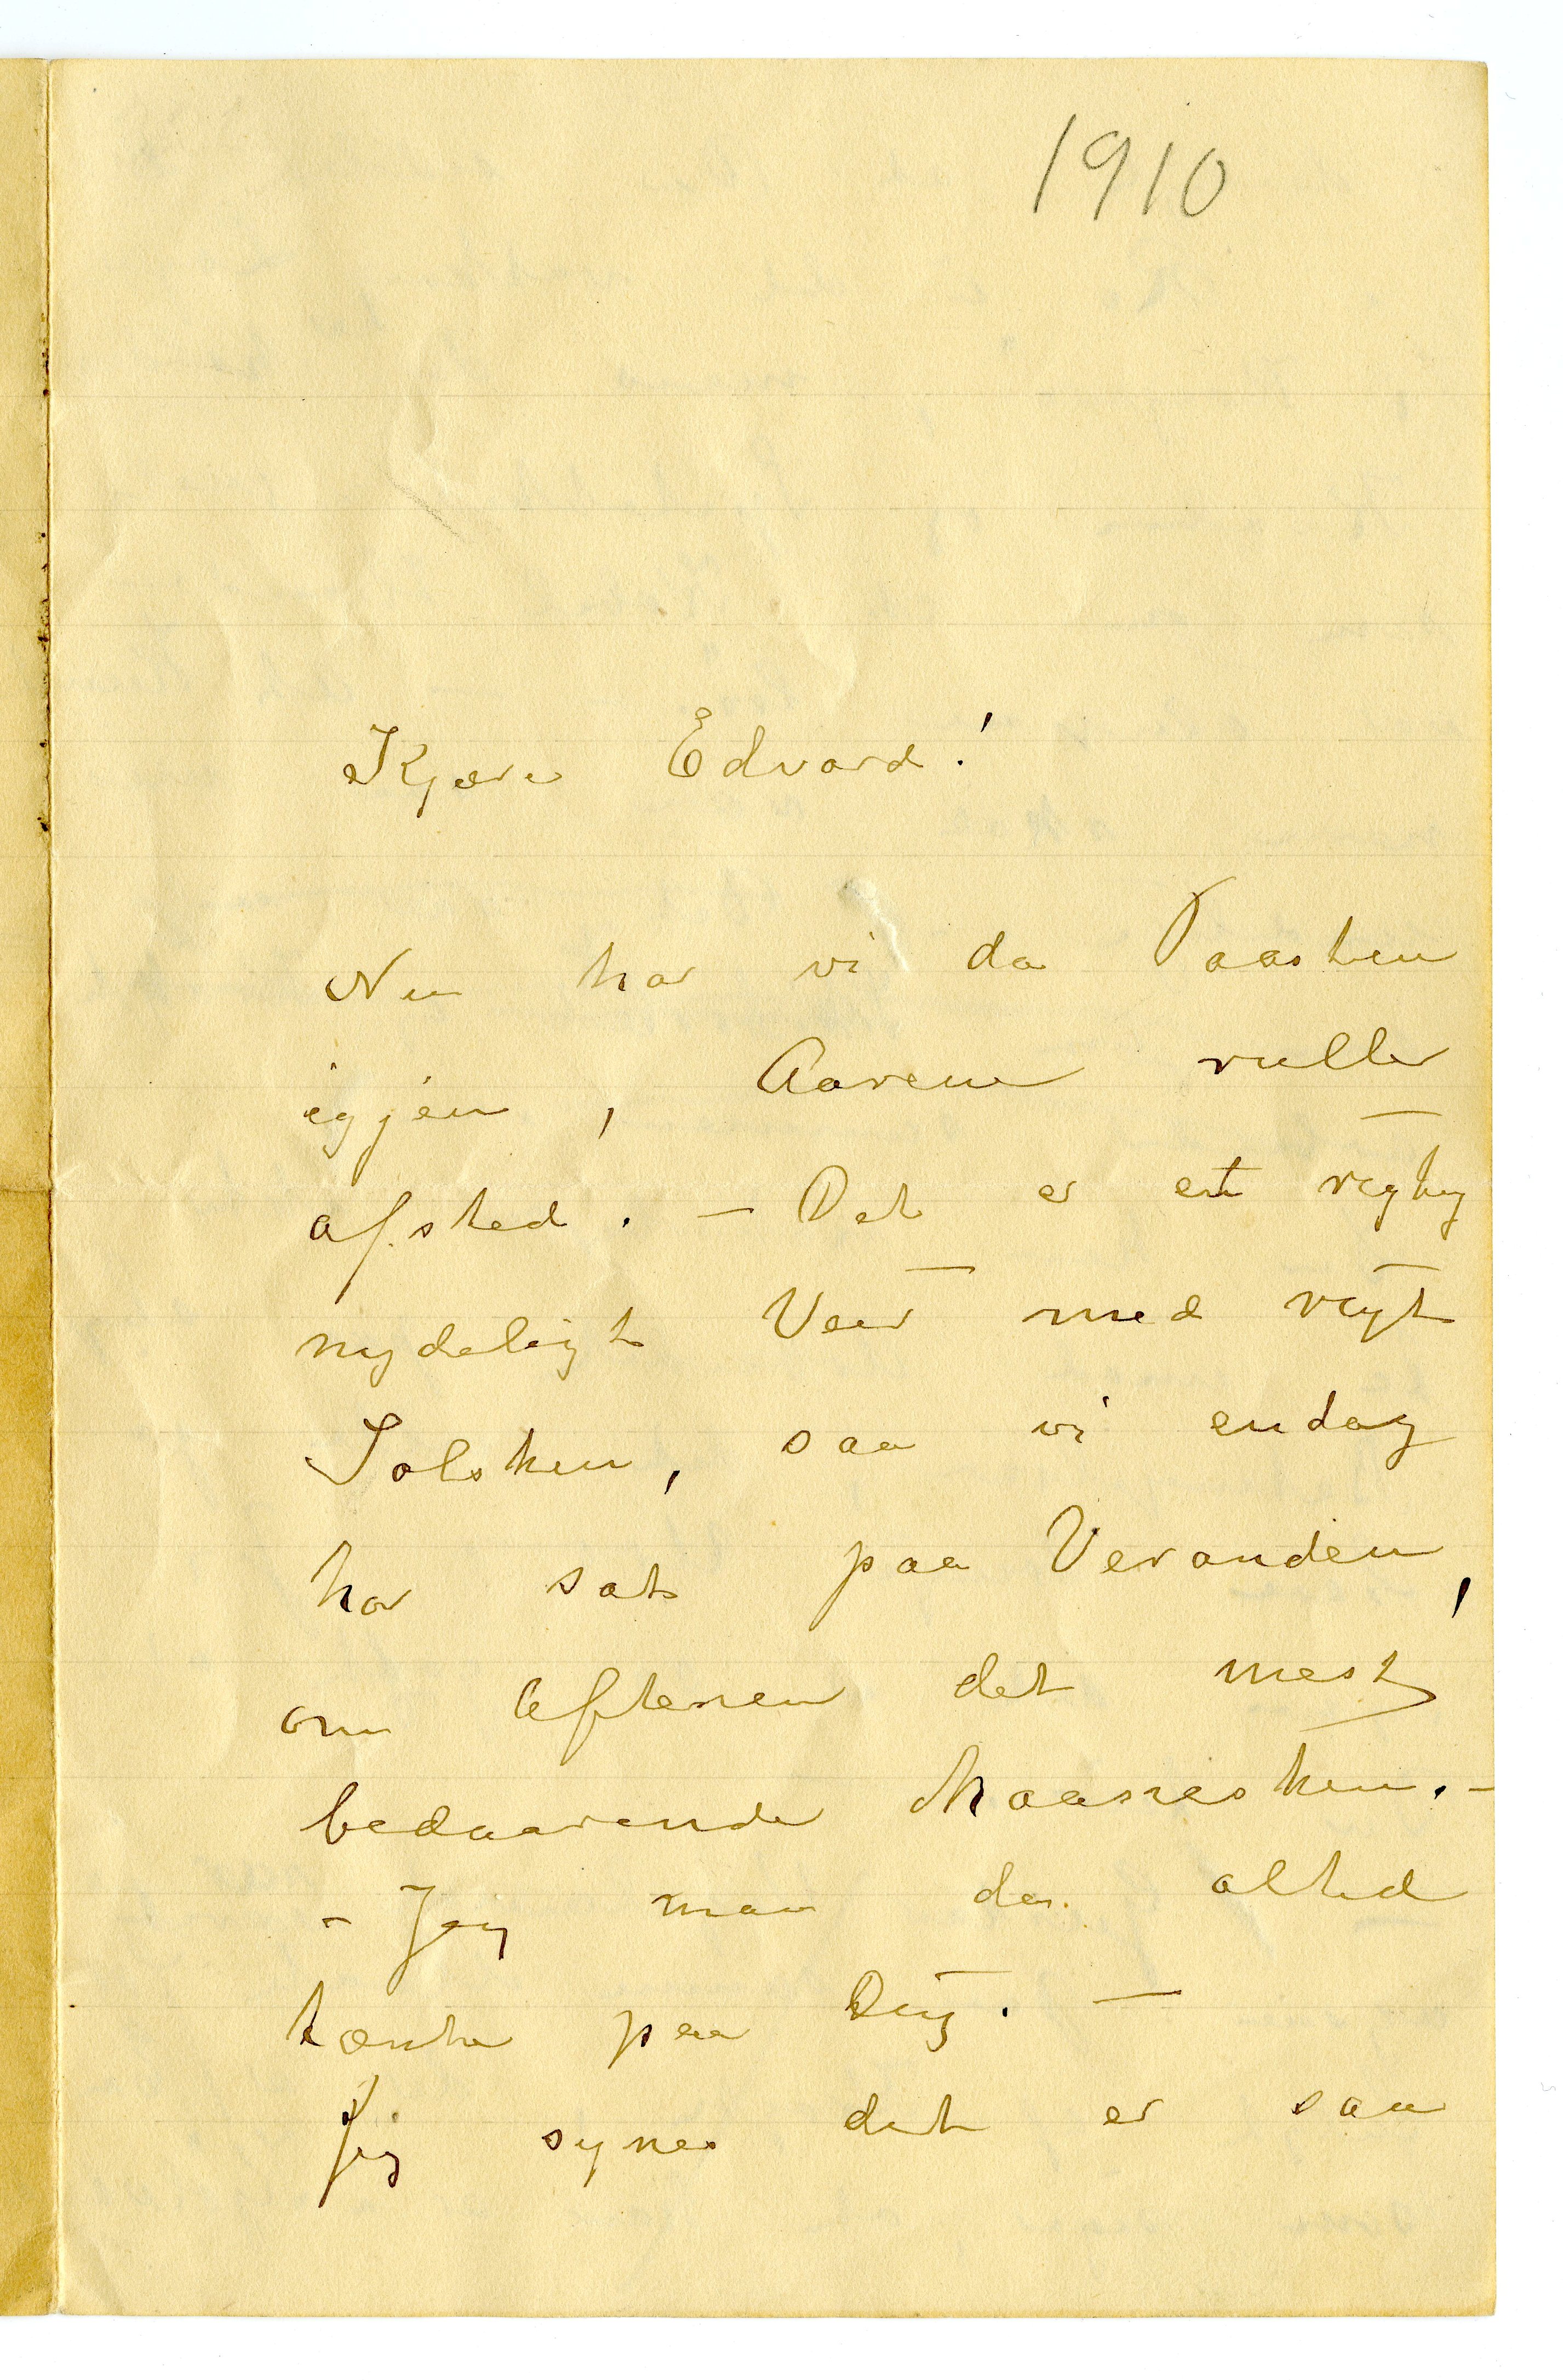 1910
Kjære Edvard!
Nu har vi da Paasken
igjen, Aarene ruller
afsted. – Det er et rigtig
nydeligt Veir med rigt
Solsken, saa vi endog
har sat paa Verandaen,
om Aftenen det mest
bedaarende Maaneskin. –
– Jeg maa da altid
tænke paa Dig. –
Jeg synes det er saa